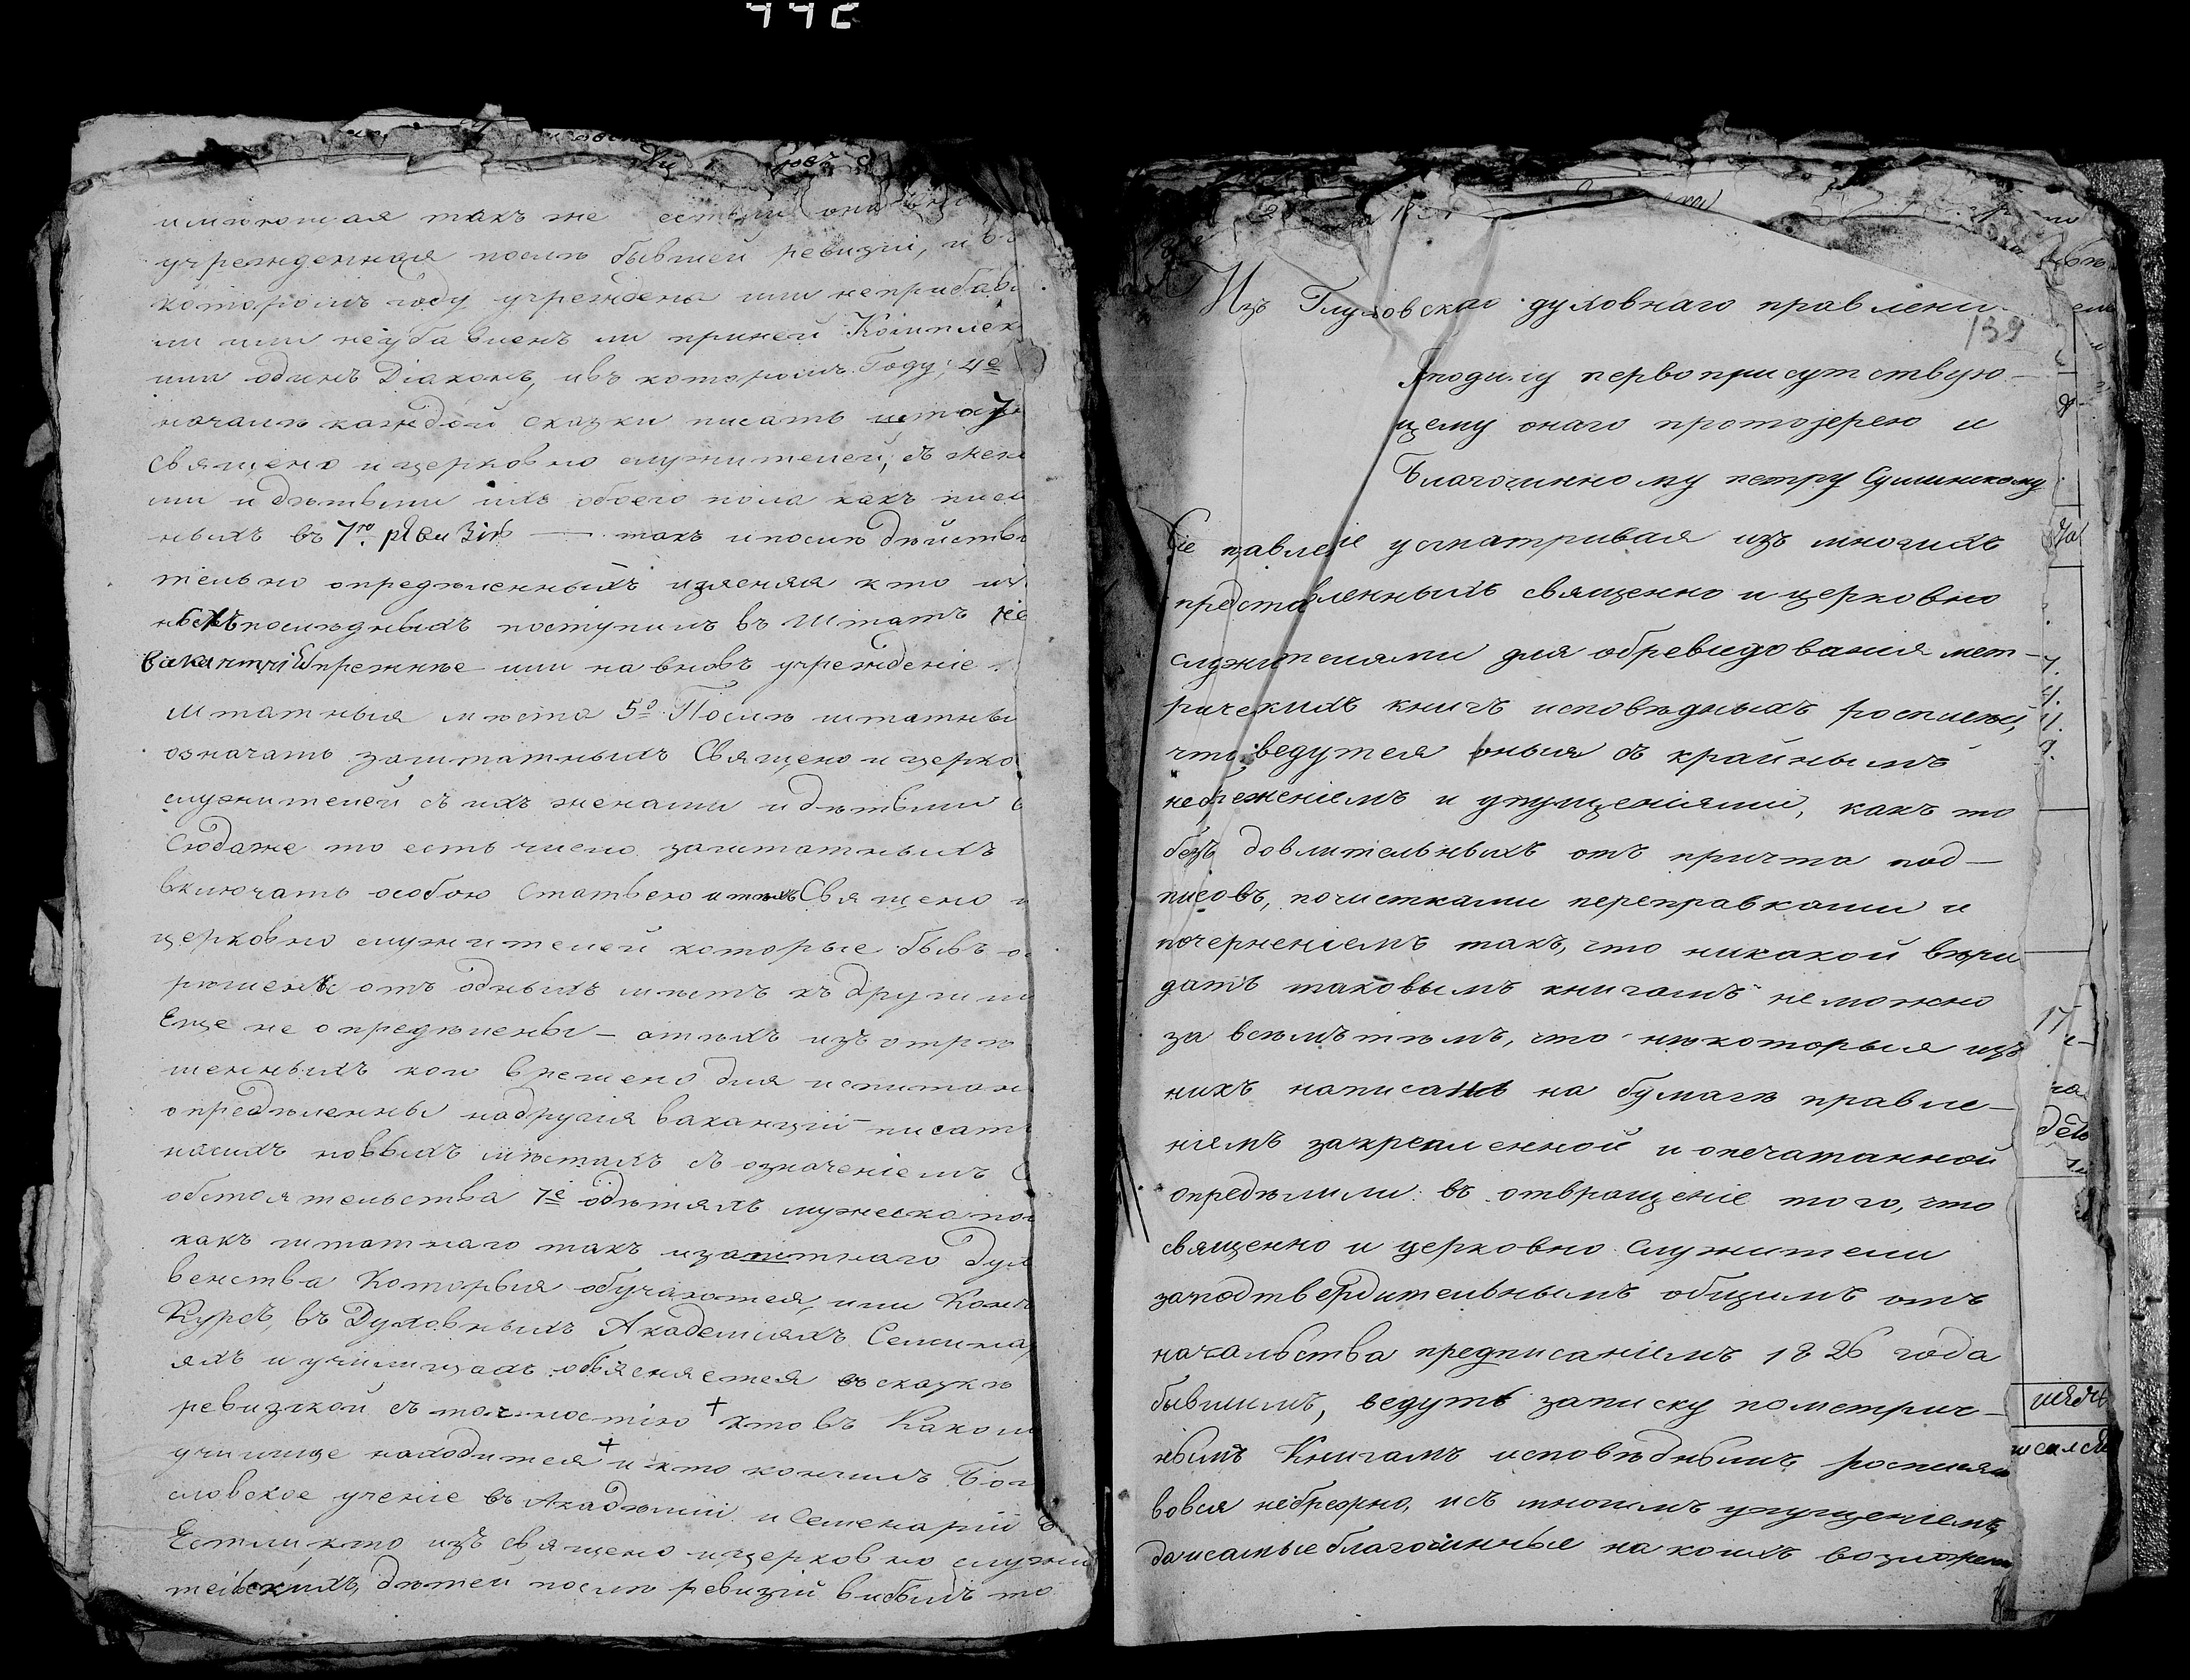 имѣющая такъ же естьли она
учрежденная послѣ бывшей ревизіи, и въ
которомъ году учреждена или неприбав
ли или неубавленъ ли приней Комплек
или одинъ Діаконъ, ивъ которомъ Году; 4е
началѣ каждой сказки писать штат
священо ицерковно служителей, съ жена
ми идѣтьми ихъ обоего пола какъ писа
ныхъ въ 7го ревизіи — такъ ипослѣ дѣйстви
тельно опредѣленныхъ изясняя кто из
послѣдныхъ поступилъ въ Штатъ на
ваканціи прежнѣе или на вновъ учрежденіе
штатныя мѣста 5о Послѣ штатны
означать заштатныхъ Священо и церко
служителей съ ихъ женами идѣтьми
Сюдаже то есть число заштатныхъ
включать особою Статьею итѣхъ Священо и
церковно служителей которые бывъ о
рѣшены отъ одныхъ мѣстъ къ другим
Еще не опредѣлены — отѣхъ изъ отрѣ
шенныхъ кои времено для испитан
опредѣленны надругія ваканціи — писать
насихъ новыхъ мѣстахъ съ означеніемъ
обстоятельства 7е одѣтяхъ мужеска пол
какъ штатнаго такъ изаштнаго Дух
венства Которыя обучаются, или Конч
Курсъ, въ Духовныхъ Академіяхъ Семина
яхъ и училищахъ объясняется въ сказкѣ
ревизкой съ точностію + кто въ Каком
училище находится + и кто кончилъ Бог
словское ученіе въ Академіи и Семенаріи
Естли кто изъ священо ицерковно служи
тельскихъ дѣтей послѣ ревизіи вибылъ то
Изъ Глуховскаго духовнаго правлени
139
Гподину первоприсутствую-
щему онаго протоіерею и
Благочинному петру Сулимскому
Сіе правленіе усматривая изъ многихъ
представленныхъ священно и церковно
служителями для обревидованія мет-
рическихъ книгъ исповѣдныхъ росписей,
что ведутся оныя съ крайнымъ
небреженіемъ и упущеніями, какъ то
безъ довлительныхъ отъ причта под-
писовъ, почистками переправками и
почерненіемъ такъ, что никакой вѣри
дать таковымъ книгамъ неможно
за всѣмъ тѣмъ, что нѣкоторыя изъ
нихъ написаны на бумагѣ правле-
ніемъ закрепленной и опечатанной
опредѣлили: въ отвращеніе того, что
священно и церковно служители
заподтвердительнымъ общимъ отъ
начальства предписаніемъ 1826 года
бывшимъ, ведутъ записку пометрич-
нымъ Книгамъ исповѣднымъ росписям
вовся небрежно, исъ многимъ упущеніемъ
даисамые благочинные на коихъ возложен